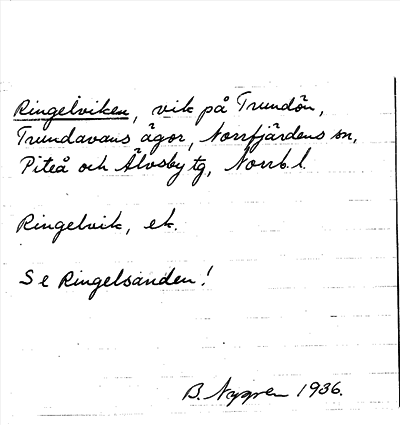 Ringelviken, vik på Trundön,
Trundavans ägor, Norrfjärdens sn,
Piteå och Älvsby tg, Norrb. l.
Ringelvik, ek.
Se Ringelsanden!
B. Nygren 1936.